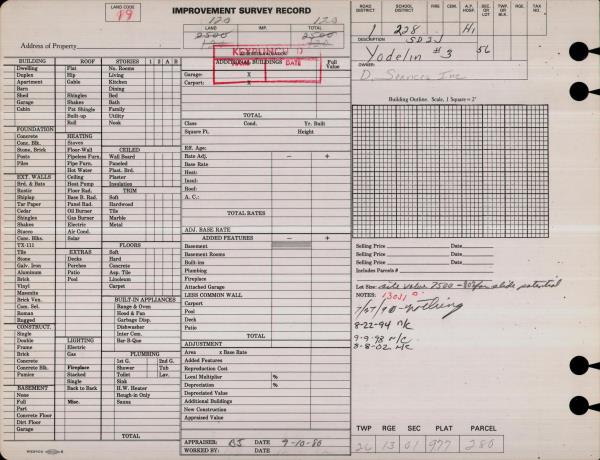 LAND CODE
19
IMPROVEMENT SURVEY RECORD
120 120
LAND IMP. TOTAL
2500 2500
120 120
Address of Property
KEYPUNCHED
DATE
ADDITIONAL BUILDINGS
Full Value
Garage: X
Carport: X
TOTAL
Class Cond. Yr. Built
Square Ft. Height
Eff. Age:
Rate Adj. − +
Base Rate
Heat:
Insul:
Roof:
A. C.:
TOTAL RATES
ADJ. BASE RATE
ADDED FEATURES − +
Basement
Basement Rooms
Built-ins
Plumbing
Fireplace
Attached Garage
LESS COMMON WALL
Carport
Pool
Deck
Patio
TOTAL
ADJUSTMENT
Area x Base Rate
Added Features
Reproduction Cost
Local Multiplier %
Depreciation %
Depreciated Value
Additional Buildings
New Construction
Appraised Value
APPRAISER: BJ DATE 9-10-80
WORKED BY: DATE
BUILDING
Dwelling
Duplex
Apartment
Barn
Shed
Garage
Cabin
FOUNDATION
Concrete
Conc. Blk.
Stone, Brick
Posts
Piles
EXT. WALLS
Brd. & Bats
Rustic
Shiplap
Tar Paper
Cedar
Shingles
Shakes
Stucco
Conc. Blks.
TX-111
Tile
Stone
Galv. Iron
Aluminum
Brick
Vinyl
Masonite
Brick Ven.
Com. Sel.
Roman
Rugged
CONSTRUCT.
Single
Double
Frame
Brick
Concrete
Concrete Blk.
Pumice
BASEMENT
None
Full
Part
Concrete Floor
Dirt Floor
Garage
ROOF
Flat
Hip
Gable
Shingles
Shakes
Pat Shingle
Built-up
Roll
HEATING
Stoves
Floor-Wall
Pipeless Furn.
Pipe Furn.
Hot Water
Ceiling
Heat Pump
Floor Rad.
Base B. Rad.
Panel Rad.
Oil Burner
Gas Burner
Electric
Air Cond.
Solar
EXTRAS
Decks
Porches
Patio
Pool
LIGHTING
Electric
Gas
Fireplace
Stacked
Single
Back to Back
Misc.
STORIES 1 2 A B
No. Rooms
Living
Kitchen
Dining
Bed
Bath
Family
Utility
Nook
CEILED
Wall Board
Paneled
Plast. Brd.
Plaster
Insulation
TRIM
Soft
Hardwood
Tile
Marble
Metal
FLOORS
Hard
Concrete
Asp. Tile
Linoleum
Carpet
BUILT-IN APPLIANCES
Range & Oven
Hood & Fan
Garbage Disp.
Dishwasher
Inter Com.
Bar-B-Que
PLUMBING
1st G. 2nd G.
Shower Tub
Toilet Lav.
Sink
H.W. Heater
Rough-in Only
Sauna
TOTAL
ROAD DISTRICT
SCHOOL DISTRICT
FIRE
CEM.
A.P. HOSP.
SEC. OR LOT
TWP. OR BLK.
RGE
TAX NO.
1 228 H1
DESCRIPTION
Yodelin #3 56
OWNER:
D. Services Inc
Building Outline. Scale, 1 Square = 2'
Selling Price Date
Selling Price Date
Selling Price Date
Includes Parcels #
Lot Size: site value 7500 -80% for slide potential
NOTES: 13011
7/27/90 - nothing
8-22-94 n/c
9-9-98 n/c
3-8-02 N/C
TWP RGE SEC PLAT PARCEL
26 13 01 977 280